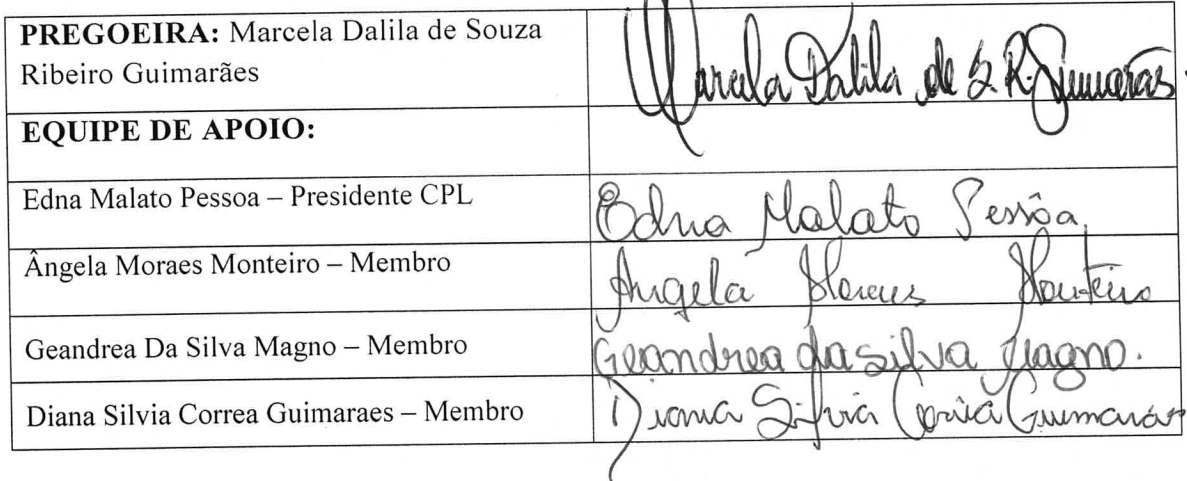 PREGOEIRA: Marcela Dalila de Souza
Ribeiro Guimarães
Marcela Dalila de S. R. Guimarães.
EQUIPE DE APOIO:
Edna Malato Pessoa – Presidente CPL
Edna Malato Pessôa
Ângela Moraes Monteiro – Membro
Angela Moraes Monteiro
Geandrea Da Silva Magno – Membro
Geandrea da silva Magno.
Diana Silvia Correa Guimaraes – Membro
Diana Silvia Corrêa Guimarães